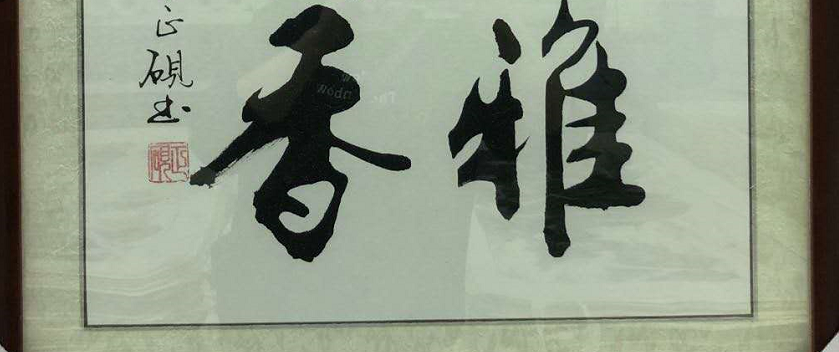 雅香
正砚书